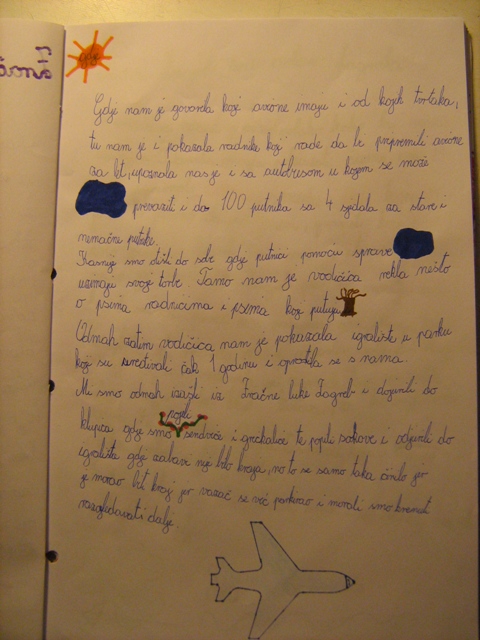 Gdje nam je govorila koje avione imaju i od kojih tvrtaka,
tu nam je i pokazala radnike koji rade da bi pripremili avione
za let, upoznala nas je i sa autobusom u kojem se može
prevoziti i do 100 putnika sa 4 sjedala za stare i
nemoćne putnike.
Kasnije smo otišli do sobe gdje putnici pomoću sprave
uzimaju svoje torbe. Tamo nam je vodičica rekla nešto
o psima radnicima i psima koji putuju
Odmah zatim vodičica nam je pokazala igralište u parku
koji su kreativali čak 1 godinu i oprostila se s nama.
Mi smo odmah izašli iz Zračne luke Zagreb i dojurili do
klupica gdje smo pojeli sendviče i grickalice te popili sokove i odjurili do
igrališta gdje zabavi nije bilo kraja, no to se samo tako činilo jer
je morao bit kraj jer vozač se već parkirao i morali smo krenut
razgledavati dalje.